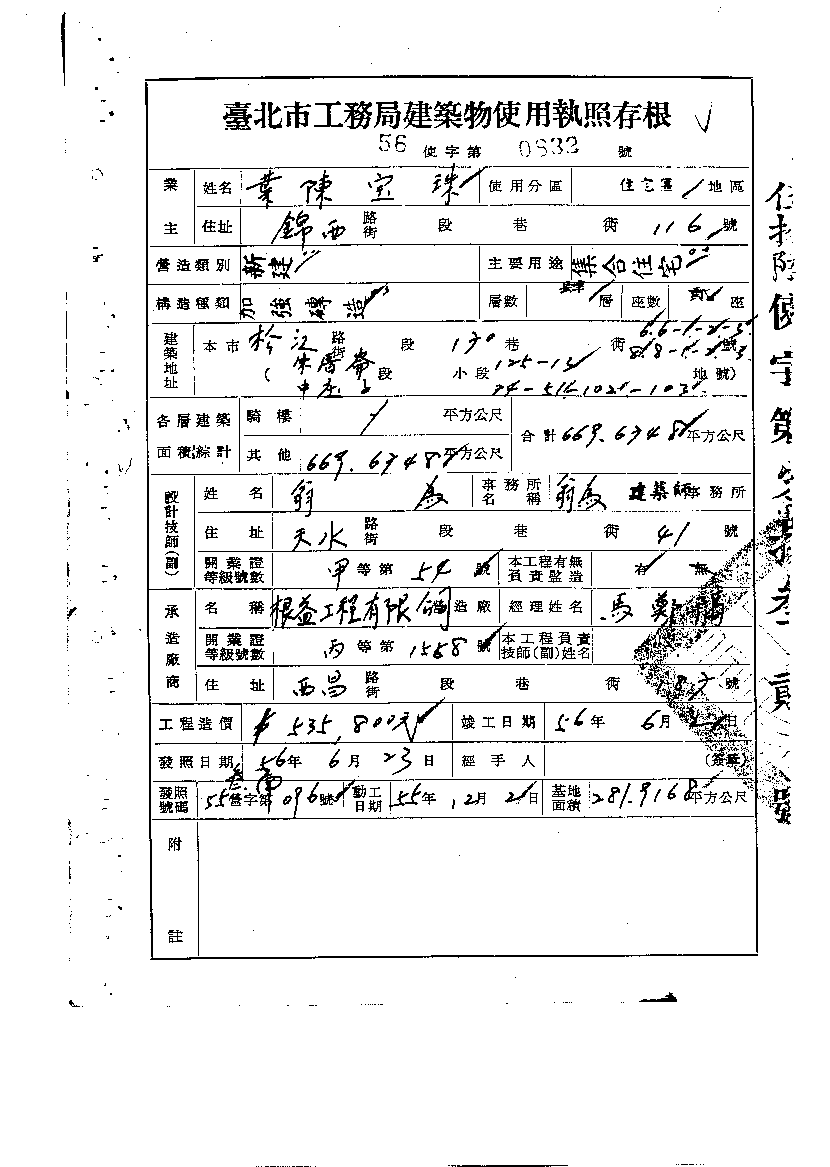 臺北市工務局建築物使用執照存根
56 使字第 0832 號
業主 姓名 葉陳宝珠 使用分區 住宅區 地區
住址 錦西 路街 段 巷 衖 116 號
營造類別 新建 主要用途 集合住宅
構造種類 加強磚造 層數 層 座數 座
建築地址 本市 松江 路街 段 130 巷 衖 號
( 朱厝崙 段 小段 125-13 地號)
中庄子 24-51
各層建築面積綜計 騎樓 平方公尺 合計 669.6348 平方公尺
其他 669.6348 平方公尺
設計技師(副) 姓名 翁 為 事務所名稱 翁為 建築師事務所
住址 天水 路街 段 巷 衖 41 號
開業證等級號數 甲 等第 54 號 本工程有無負責監造 有 無
承造廠商 名稱 根益工程有限公司 造廠 經理姓名 馬鄭
開業證等級號數 丙 等第 1568 號 本工程負責技師(副)姓名
住址 西昌 路街 段 巷 衖 號
工程造價 535,800元 竣工日期 56年 6月 日
發照日期 56年 6月 23日 經手人 (簽章)
發照號碼 55 字第 096 號 動工日期 55年 12月 2日 基地面積 281.9168 平方公尺
附註